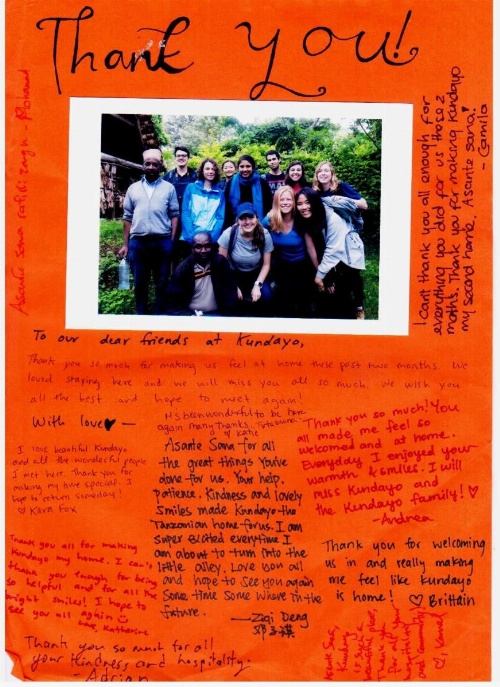 Thank you!
Asante sana rafiki zangu - Mohamed
I can't thank you all enough for
everything you did for us those 2
months. Thank you for making Kundayo
my second home. Asante sana!
- Camila
To our dear friends at Kundayo,
Thank you so much for making us feel at home these past two months. We
loved staying here and we will miss you all so much. We wish you
all the best and hope to meet again!
With love ♥ —
It's been wonderful to be here
again many thanks.
Katie
I love beautiful Kundayo
and all the wonderful people
I met here. Thank you for
making my time special. I
hope to return someday!
♡ Kara Fox
Asante Sana for all
the great things You've
done for us. Your help,
patience, kindness and lovely
smiles made Kundayo the
Tanzanian home for us. I am
super excited everytime I
am about to turn into the
little alley. Love you all
and hope to see you again
some time some where in the
future.
— Ziqi Deng
邓子祺
Thank you so much! You
all made me feel so
welcomed and at home.
Everyday I enjoyed your
warmth & smiles. I will
miss Kundayo and
the Kundayo family! ♡
- Andrea
Thank you all for making
Kundayo my home. I can't
thank you enough for being
so helpful and for all the
bright smiles! I hope to
see you all again ☺
Love, Katherine
Thank you for welcoming
us in and really making
me feel like Kundayo
is home! ♡ Brittain
Thank you so much for all
your kindness and hospitality.
- Adrian
Asante Sana,
Kundayo
is such a
beautiful place,
Thank you
for all your
hospitality
and community